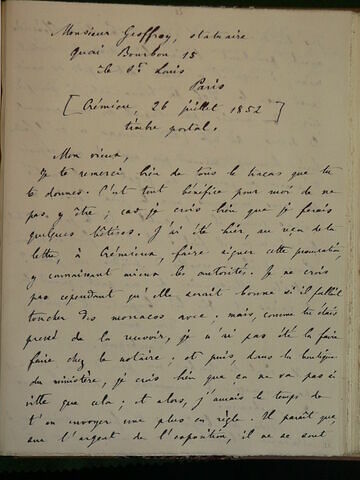 Monsieur Geoffroy, statuaire
Quai Bourbon 15
île St Louis
Paris
[Crémieu, 26 juillet 1852]
timbre postal.
Mon vieux,
Je te remercie bien de tous le tracas que tu
te donnes. C'est tout bénéfice pour moi de ne
pas y être ; car je crois bien que je ferais
quelques bêtises. J'ai été hier, au reçu de ta
lettre, à Crémieux, faire signer cette procuration,
y connaissant mieux les autorités. Je ne crois
pas cependant qu'elle serait bonne si il fallait
toucher des monacos avec ; mais, comme tu étais
pressé de la recevoir, je n'ai pas été la faire
faire chez le notaire ; et puis, dans la boutique
du ministère, je crois bien que ça ne va pas si
vite que cela ; et alors, j'aurais le temps de
t'en envoyer une plus en règle. Il paraît que,
sur l'argent de l'exposition, il ne se sont